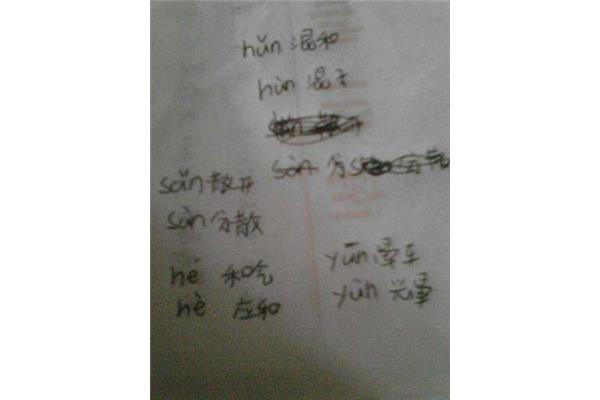 hǔn 混和
hùn 混子
sǎn 散开
sàn 分散
hé 和吃
hè 应和
yūn 晕车
yùn 光晕